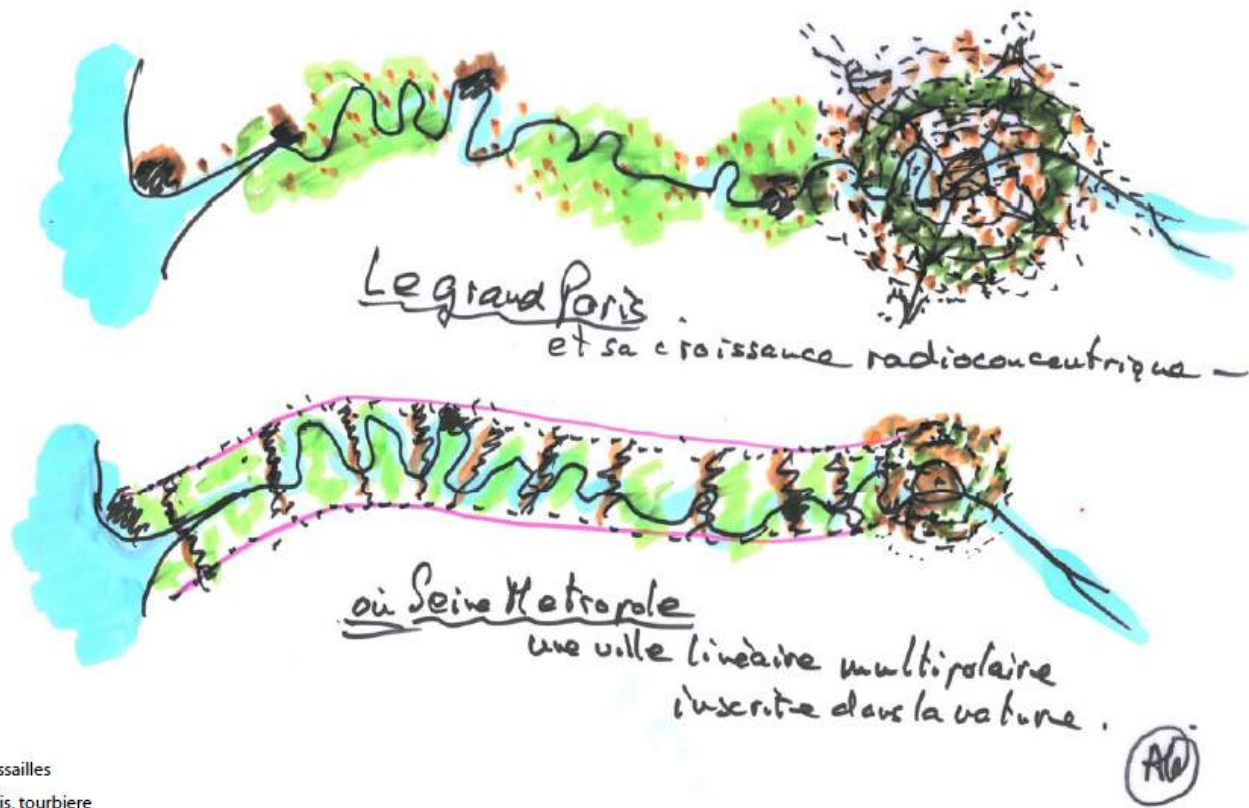 Le grand Paris
et sa croissance radioconcentrique –
où Seine Metropole
une ville linéaire multipolaire
inscrite dans la nature.
ssailles
is, tourbiere